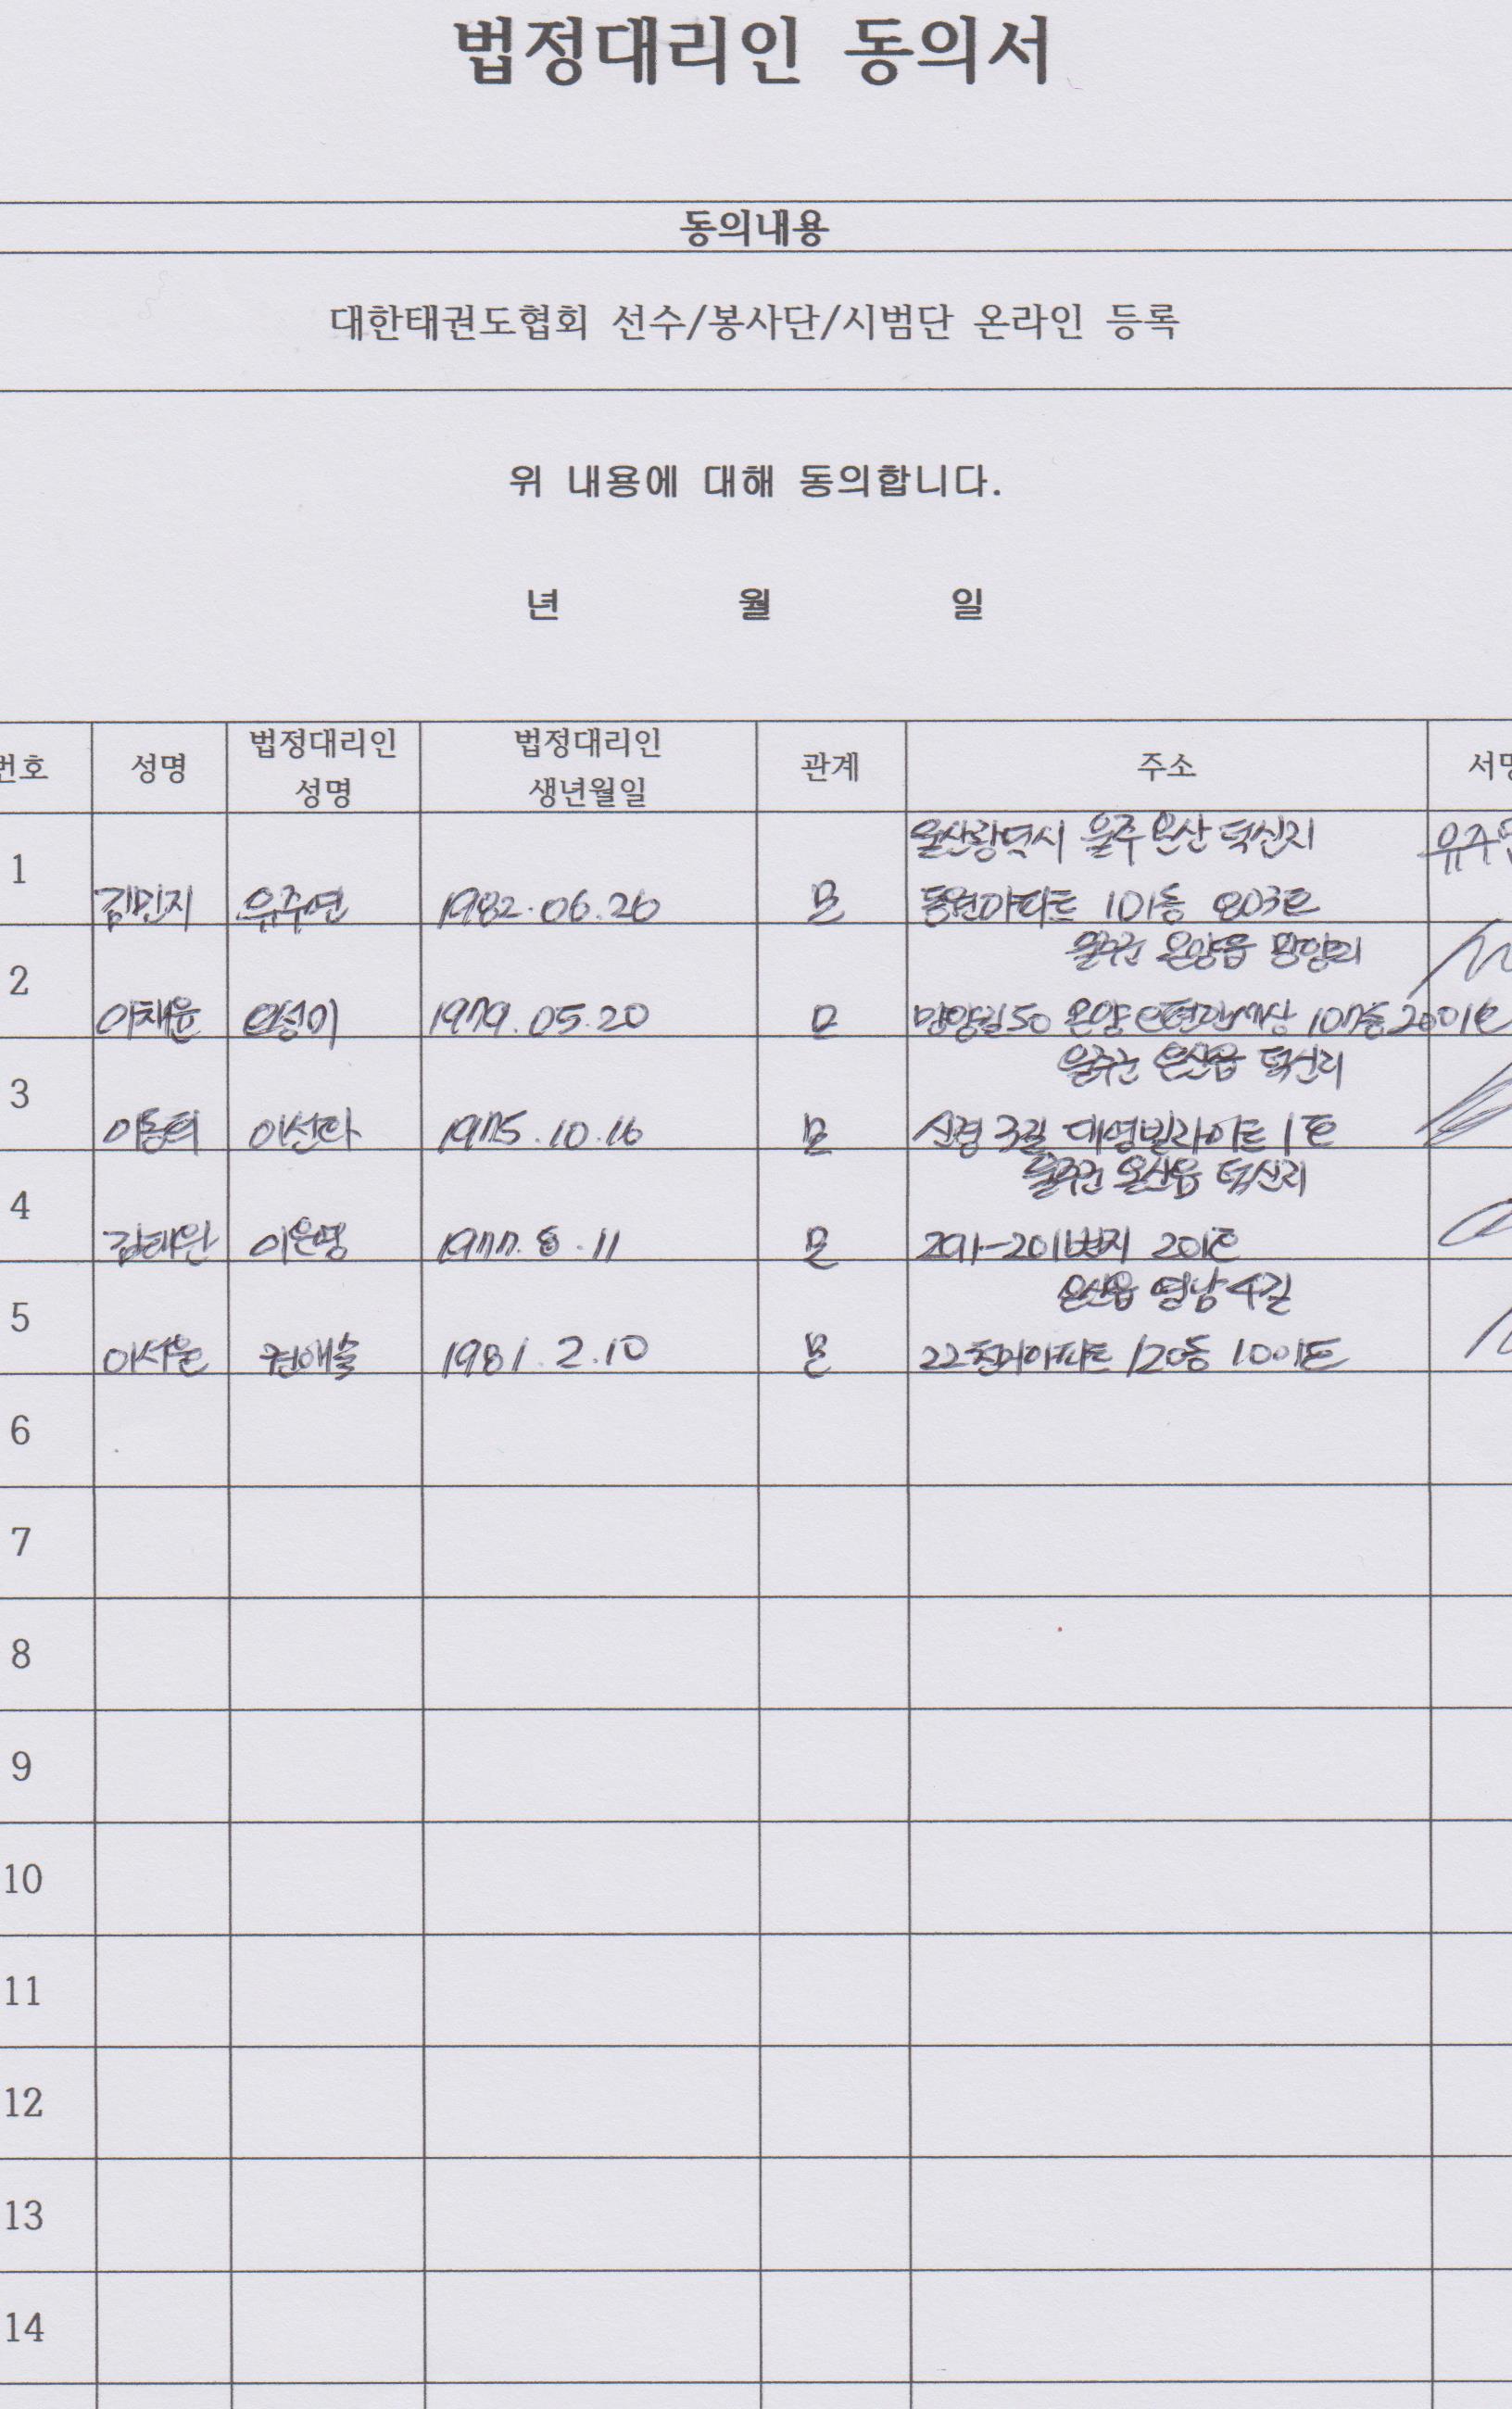 법정대리인 동의서
동의내용
대한태권도협회 선수/봉사단/시범단 온라인 등록
위 내용에 대해 동의합니다.
년 월 일
번호 성명 법정대리인 성명 법정대리인 생년월일 관계 주소 서명
울산광역시 울주 온산 덕신리 유주연
1 김민지 유주연 1982.06.26 모 동원아파트 101동 803호
울주군 온양읍 망양리
2 이채윤 안성미 1979.05.20 모 망양길50 온양e편한세상 107동2001호
울주군 온산읍 덕신리
3 이동혁 이선라 1975.10.16 모 신경3길 대영빌라이트 1호
울주군 온산읍 덕신리
4 김태완 이은영 1977.8.11 모 201호
온산읍 영남4길
5 이서윤 권애솔 1981.2.10 모 120동 1001호
6
7
8
9
10
11
12
13
14